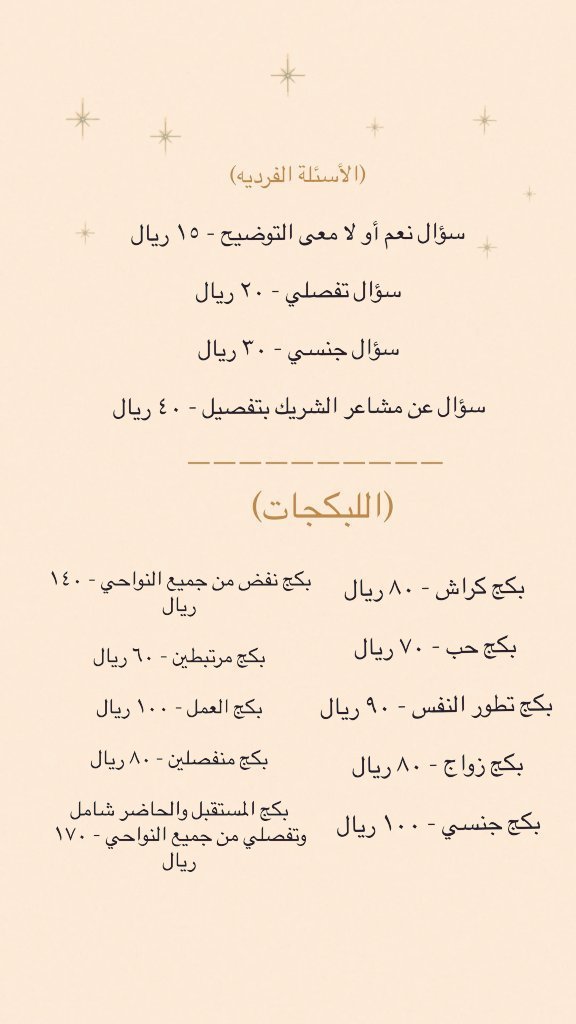 (الأسئلة الفرديه)
سؤال نعم أو لا معى التوضيح - ١٥ ريال
سؤال تفصلي - ٢٠ ريال
سؤال جنسي - ٣٠ ريال
سؤال عن مشاعر الشريك بتفصيل - ٤٠ ريال
(اللبكجات)
بكج كراش - ٨٠ ريال
بكج حب - ٧٠ ريال
بكج تطور النفس - ٩٠ ريال
بكج زواج - ٨٠ ريال
بكج جنسي - ١٠٠ ريال
بكج نفض من جميع النواحي - ١٤٠
ريال
بكج مرتبطين - ٦٠ ريال
بكج العمل - ١٠٠ ريال
بكج منفصلين - ٨٠ ريال
بكج المستقبل والحاضر شامل
وتفصلي من جميع النواحي - ١٧٠
ريال